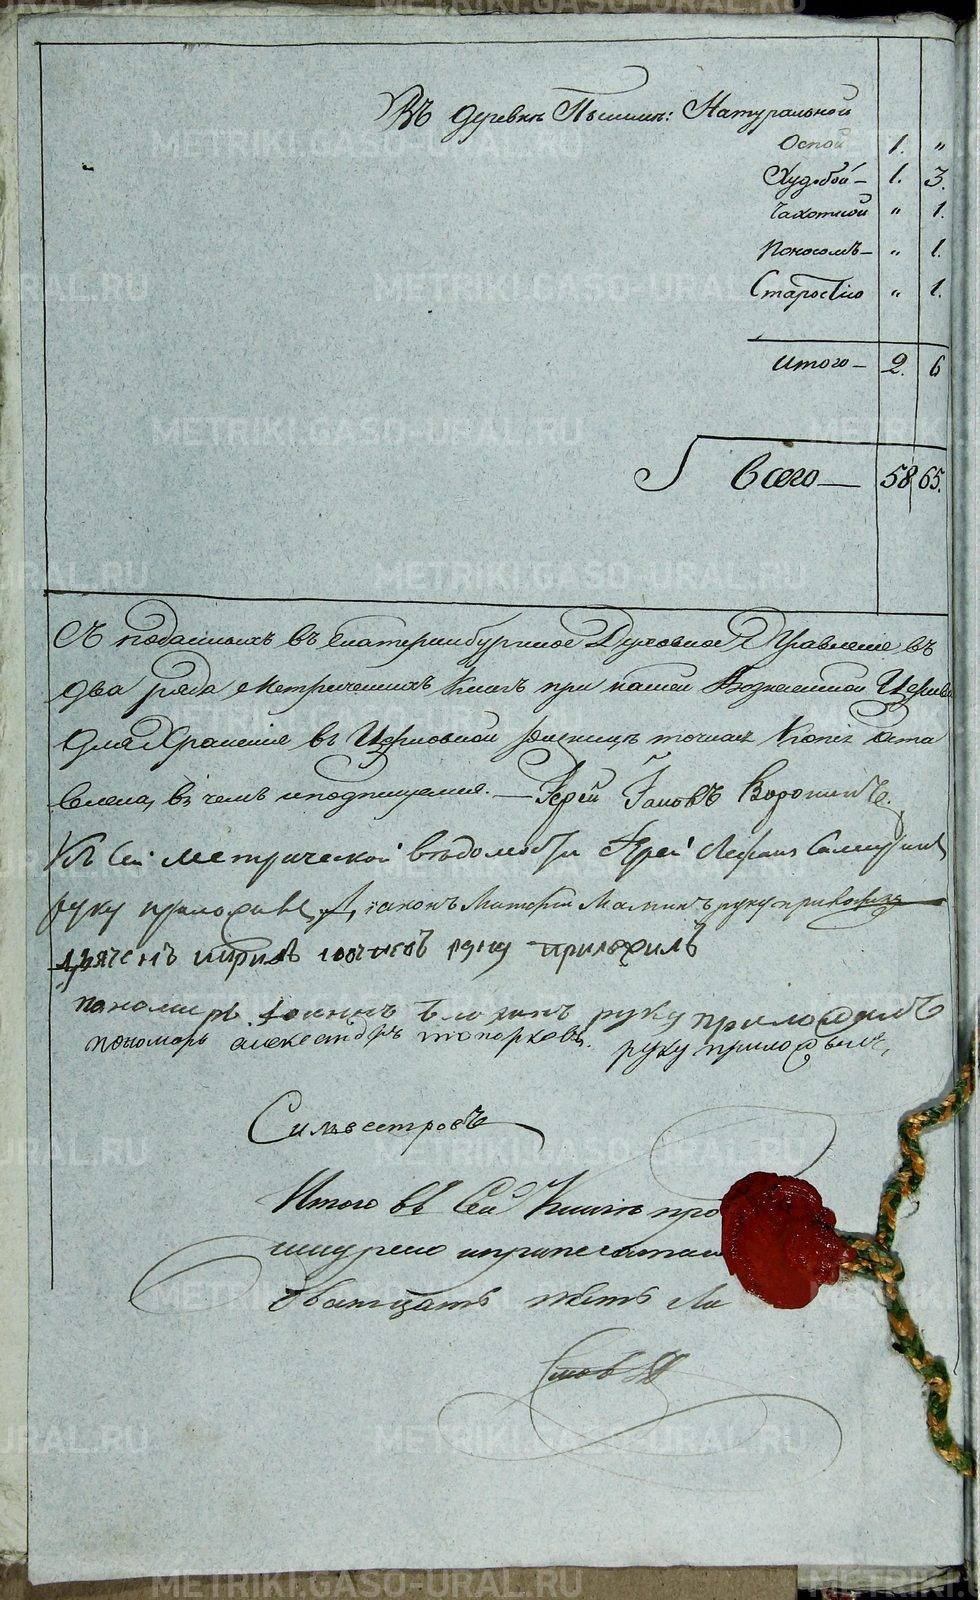 Въ деревнѣ Пышмѣ: Натуральной
Оспой 1. "
Худобой – 1. 3.
Чахоткой " 1.
Поносомъ – " 1.
Старостію " 1.
Итого – 2. 6
Всего — 58 65.
Съ поданныхъ въ Екатеринбургское Духовное Управленіе въ
два ряда метрическихъ книгъ при нашей Вознесенской Церкви
для храненія въ Церковной ризницѣ точная Копія оста
влена, въ чемъ и подпишемся. — Іерей Іаковъ Воронинъ.
Къ сей метрической вѣдомости Іерей Стефанъ
руку приложилъ, Діаконъ Маминъ руку приложилъ
дьячекъ Кирилъ руку приложилъ
пономарь Іоаннъ руку приложилъ
пономарь александръ топорковъ руку приложилъ,
Сильвестровъ
Итого въ сей Книгѣ про
шнурено и припечатано
дватцать пять ли
стовъ
METRIKI.GASO-URAL.RU